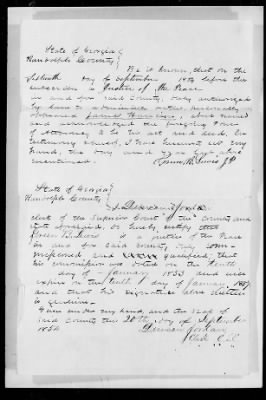 State of Georgia
Randolph County
Be it known, that on the
day of September 1854 before the
subscriber a Justice of the Peace
in and for said County, duly authorized
by law to administer oaths, personally
appeared James Harrison, above named
and acknowledged the foregoing Power
of Attorney to be his act and deed. In
testimony whereof, I have hereunto set my
hand, the day and year last above
mentioned.
Lewis J.P.
State of Georgia
Randolph County
I
Clerk of the Superior Court of the County and
State aforesaid, do hereby certify that
is a Justice of the Peace
in and for said County, duly com-
missioned, and qualified, that
his commission was dated on the
day of January 1853 and will
expire on the day of January 1857
and that his signature above written
is genuine.
Given under my hand, and the seal of
said County the 20th day of September
1854
Clerk